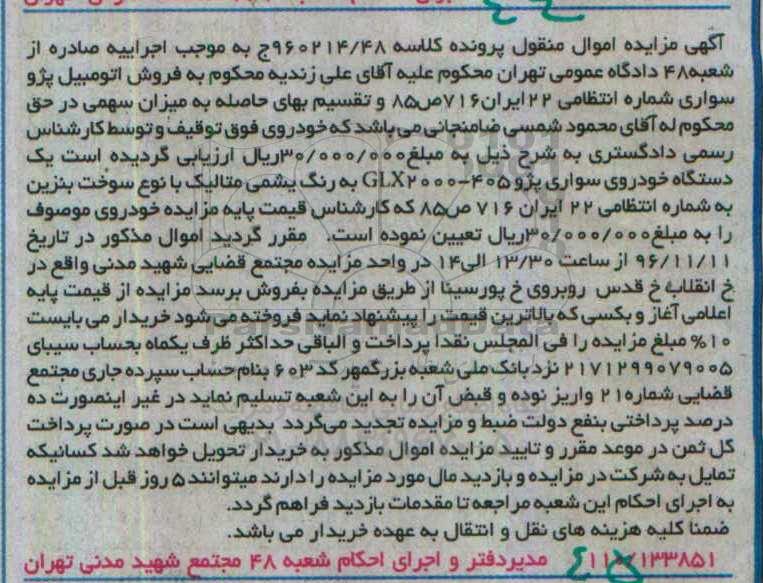 آگهی مزایده اموال منقول پرونده کلاسه ۹۶۰۲۱۴/۴۸ج به موجب اجراییه صادره از
شعبه۴۸ دادگاه عمومی تهران محکوم علیه آقای علی زندیه محکوم به فروش اتومبیل پژو
سواری شماره انتظامی ۲۲ایران۷۱۶ص۸۵ و تقسیم بهای حاصله به میزان سهمی در حق
محکوم له آقای محمود شمسی ضامنجانی می باشد که خودروی فوق توقیف و توسط کارشناس
رسمی دادگستری به شرح ذیل به مبلغ۳۰/۰۰۰/۰۰۰ریال ارزیابی گردیده است یک
دستگاه خودروی سواری پژو ۴۰۵-GLX۲۰۰۰ به رنگ یشمی متالیک با نوع سوخت بنزین
به شماره انتظامی ۲۲ ایران ۷۱۶ ص۸۵ که کارشناس قیمت پایه مزایده خودروی موصوف
را به مبلغ۳۰/۰۰۰/۰۰۰ریال تعیین نموده است. مقرر گردید اموال مذکور در تاریخ
۹۶/۱۱/۱۱ از ساعت ۱۳/۳۰ الی۱۴ در واحد مزایده مجتمع قضایی شهید مدنی واقع در
خ انقلاب خ قدس روبروی خ پورسینا از طریق مزایده بفروش برسد مزایده از قیمت پایه
اعلامی آغاز و بکسی که بالاترین قیمت را پیشنهاد نماید فروخته می شود خریدار می بایست
۱۰% مبلغ مزایده را فی المجلس نقدا پرداخت و الباقی حداکثر ظرف یکماه بحساب سیبای
۲۱۷۱۲۹۹۰۷۹۰۰۵ نزد بانک ملی شعبه بزرگمهر کد ۶۰۳ بنام حساب سپرده جاری مجتمع
قضایی شماره۲۱ واریز نوده و قبض آن را به این شعبه تسلیم نماید در غیر اینصورت ده
درصد پرداختی بنفع دولت ضبط و مزایده تجدید می‌گردد بدیهی است در صورت پرداخت
کل ثمن در موعد مقرر و تایید مزایده اموال مذکور به خریدار تحویل خواهد شد کسانیکه
تمایل به شرکت در مزایده و بازدید مال مورد مزایده را دارند میتوانند ۵ روز قبل از مزایده
به اجرای احکام این شعبه مراجعه تا مقدمات بازدید فراهم گردد.
ضمنا کلیه هزینه های نقل و انتقال به عهده خریدار می باشد.
مدیردفتر و اجرای احکام شعبه ۴۸ مجتمع شهید مدنی تهران